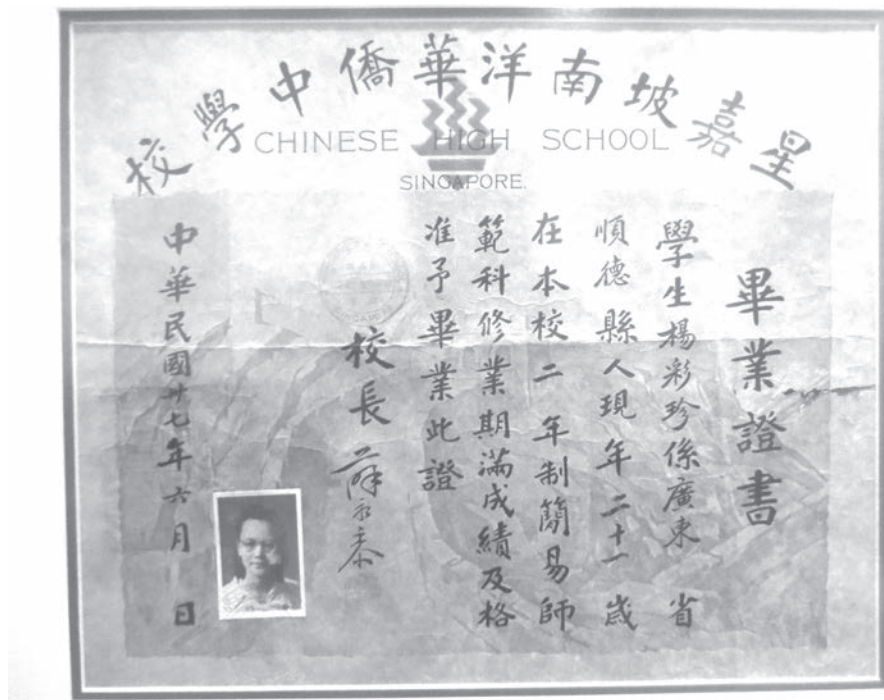 星嘉坡南洋華僑中學校
CHINESE HIGH SCHOOL
SINGAPORE.
畢業證書
學生楊彩珍係廣東 省
順德縣人現年二十一歲
在本校二 年制簡易師
範科修業期滿成績及格
准予畢業此證
校長 薛永黍
中華民國廿七年六月 日